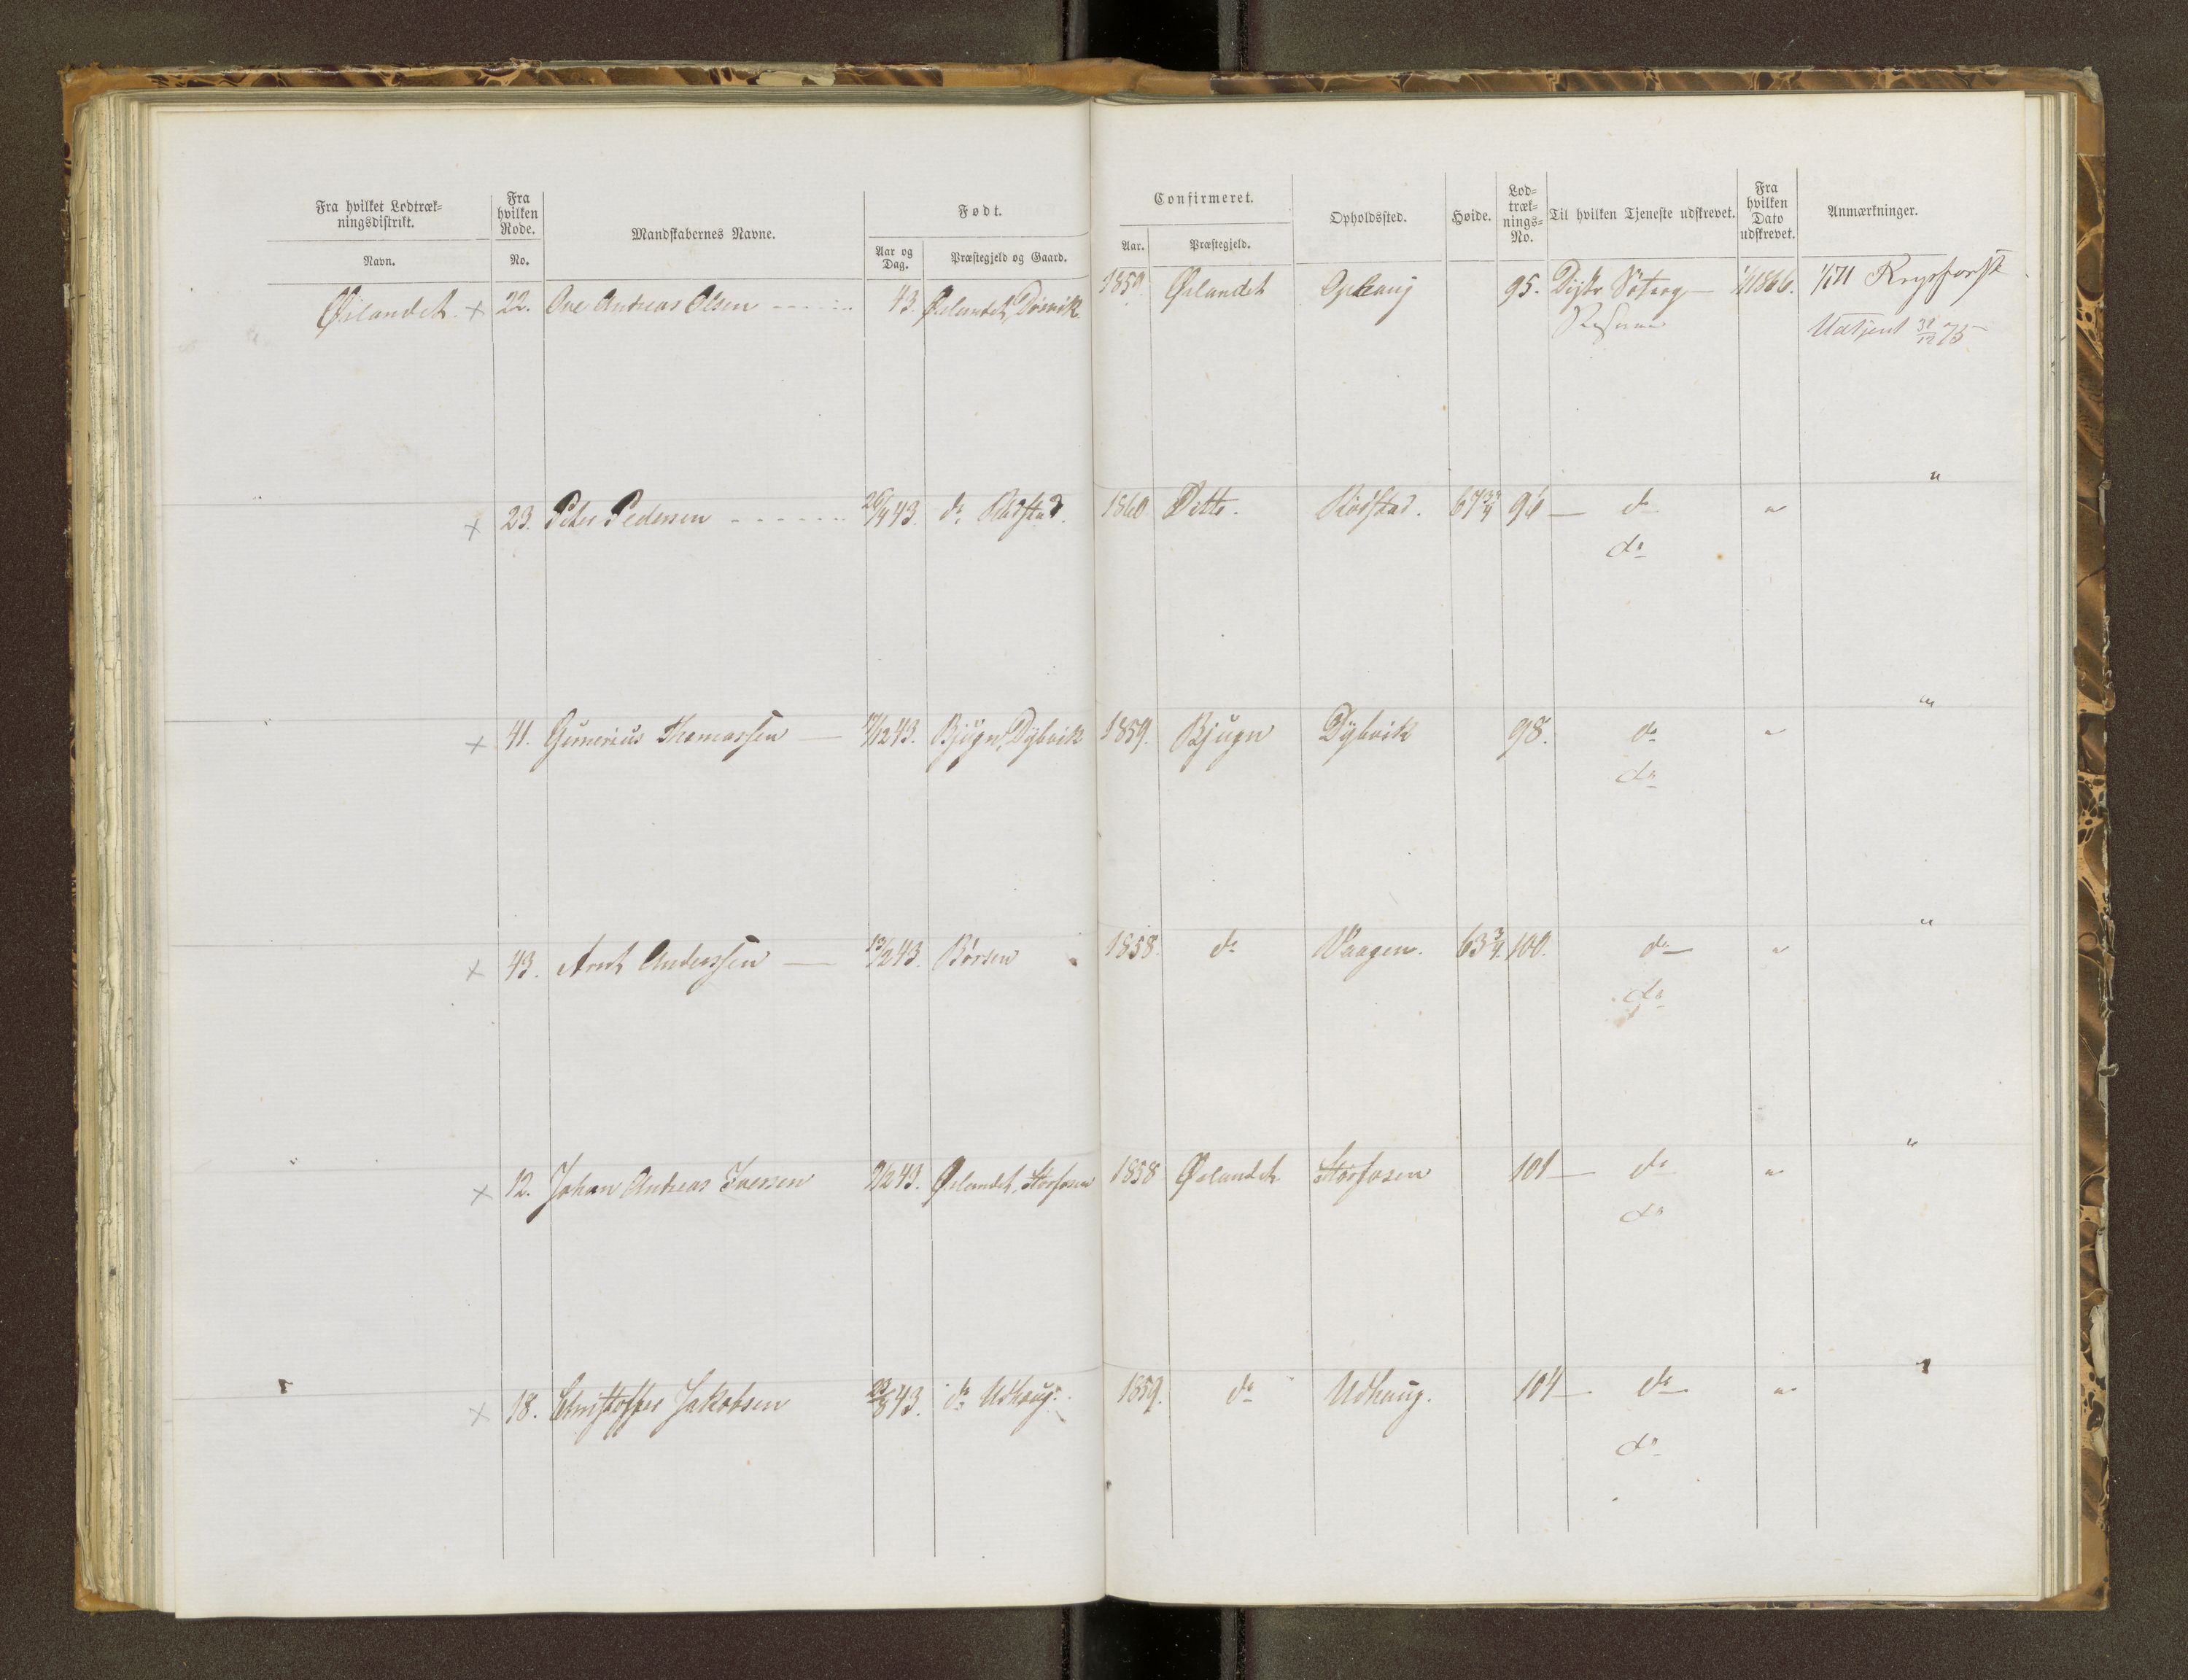 Fra hvilket Lodtræk-
ningsdistrikt.
Navn.
Fra
hvilken
Rode.
No.
Mandskabernes Navne.
Født.
Aar og
Dag.
Præstegjeld og Gaard.
Confirmeret.
Aar.
Præstegjeld.
Opholdssted.
Høide.
Lod-
træk-
nings-
No.
Til hvilken Tjeneste udskrevet.
Fra
hvilken
Dato
udskrevet.
Anmærkninger.
Ørlandet × 22. Ove Andreas Olsen 43. Ørlandet, 1859 Ørlandet Ophaug 95. 1/1 1866. 1/1 71
Udtjent 31/12 75
" × 23. Peter Pedersen 26/4 43. do Rødstad. 1860 Ditto. Rødstad. 67 3/4 96 — do " "
do
" × 41. Gunerius Thomassen — 43. Bjugn, Dybvik 1859. Bjugn Dybvik 98. do " "
do
× 43. Arnt Anderssen — 13/2 43. Børsen 1858. do Vaagen. 63 3/4. 100. do — " "
do
" × 12. Johan Andreas Iversen 43. Ørlandet, Storfosen 1858 Ørlandet Storfosen 101 — do " "
do
" × 18. Christoffer Jakobsen 23/8 43. do Udhaug. 1859. do Udhaug. 104 — do — " "
do